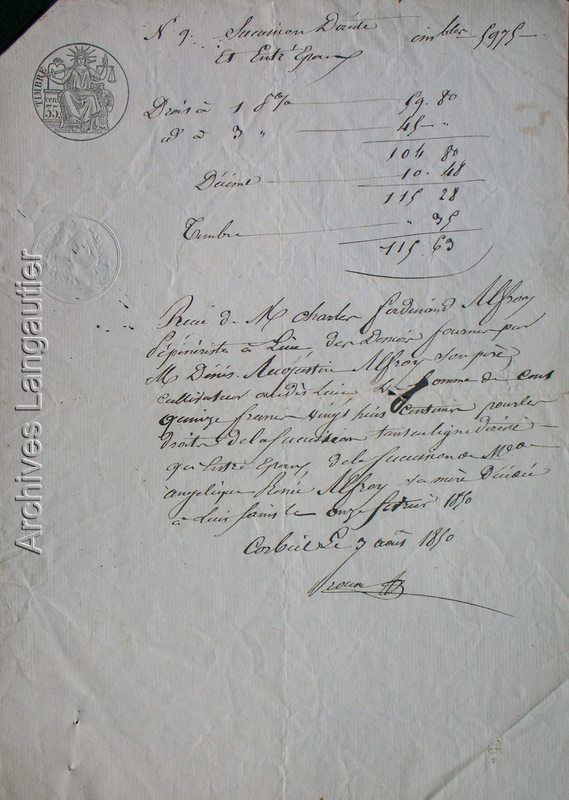 N° 9. Succession Directe immbles 5975
Et Entre Epoux
Droit à 1 p% 59. 80
id à 3 " 45 "
104 80
Décime 10. 48
115 28
Timbre " 35
115. 63
TIMBRE
cen 35
Reçu de M Charles Ferdinand Alfroy
Pépiniériste à Lieu des Deniers fournis par
M Denis Augustin Alfroy son père
cultivateur audit Lieu La Somme de cent
quinze francs vingt huit centimes pour les
droits de la Succession tant en ligne directe
qu'Entre Epoux de la Succession de Mde
angélique Renée Alfroy sa mère Décédée
à Lieusaint le onze février 1850
Corbeil Le 7 août 1850
Archives Langautier